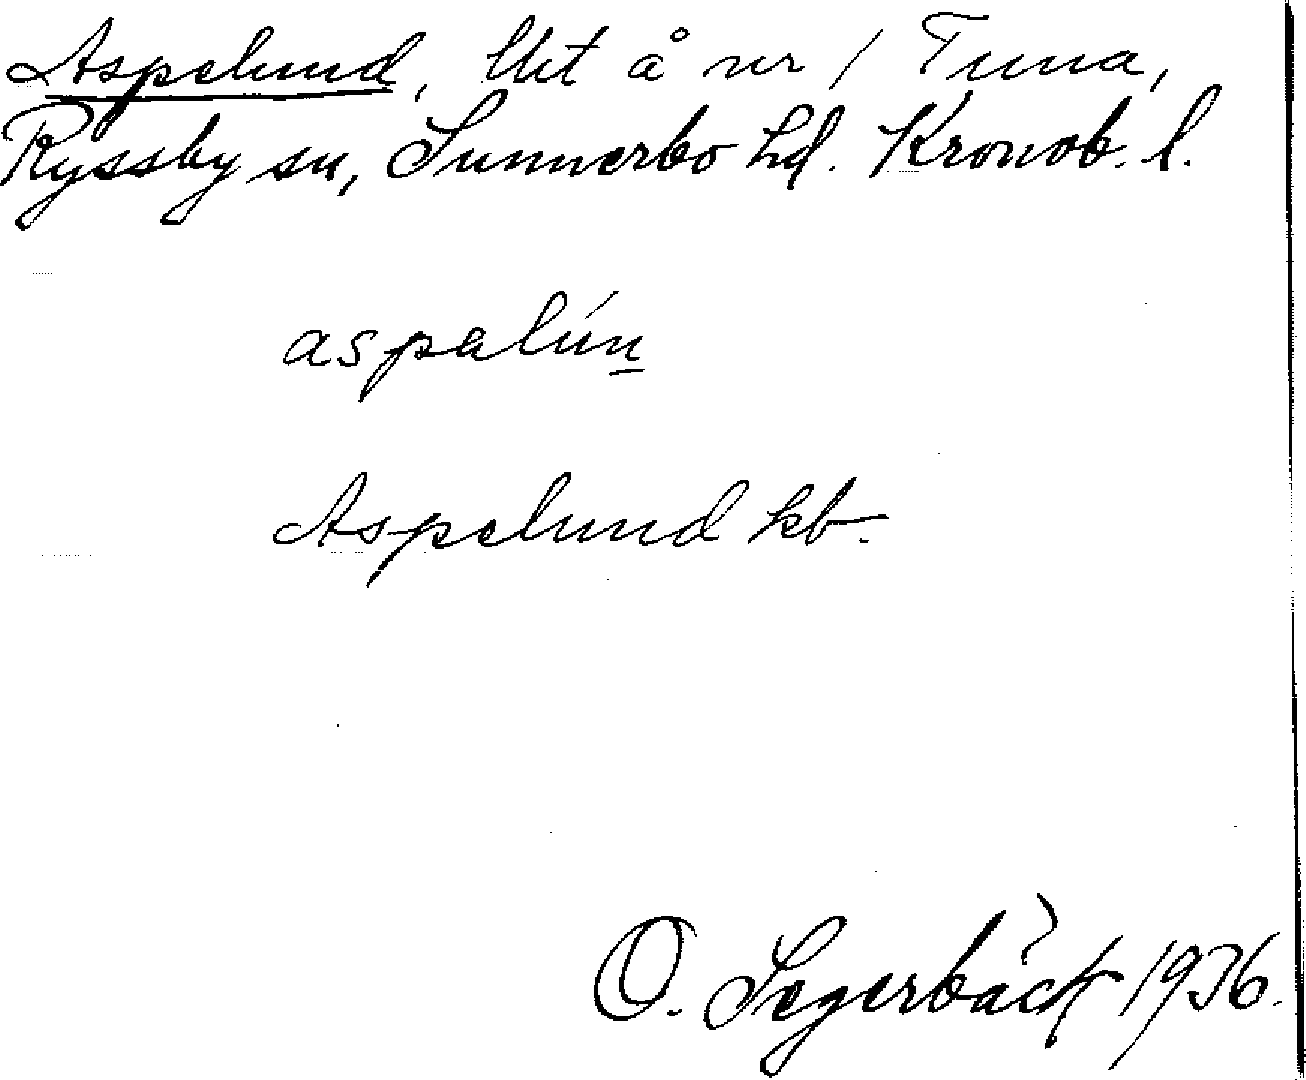 Aspelund, lht å nr 1 Tuna,
Ryssby sn, Sunnerbo hd. Kronob. l.
aspalún
Aspelund kb.
O. Segerbäck 1936.